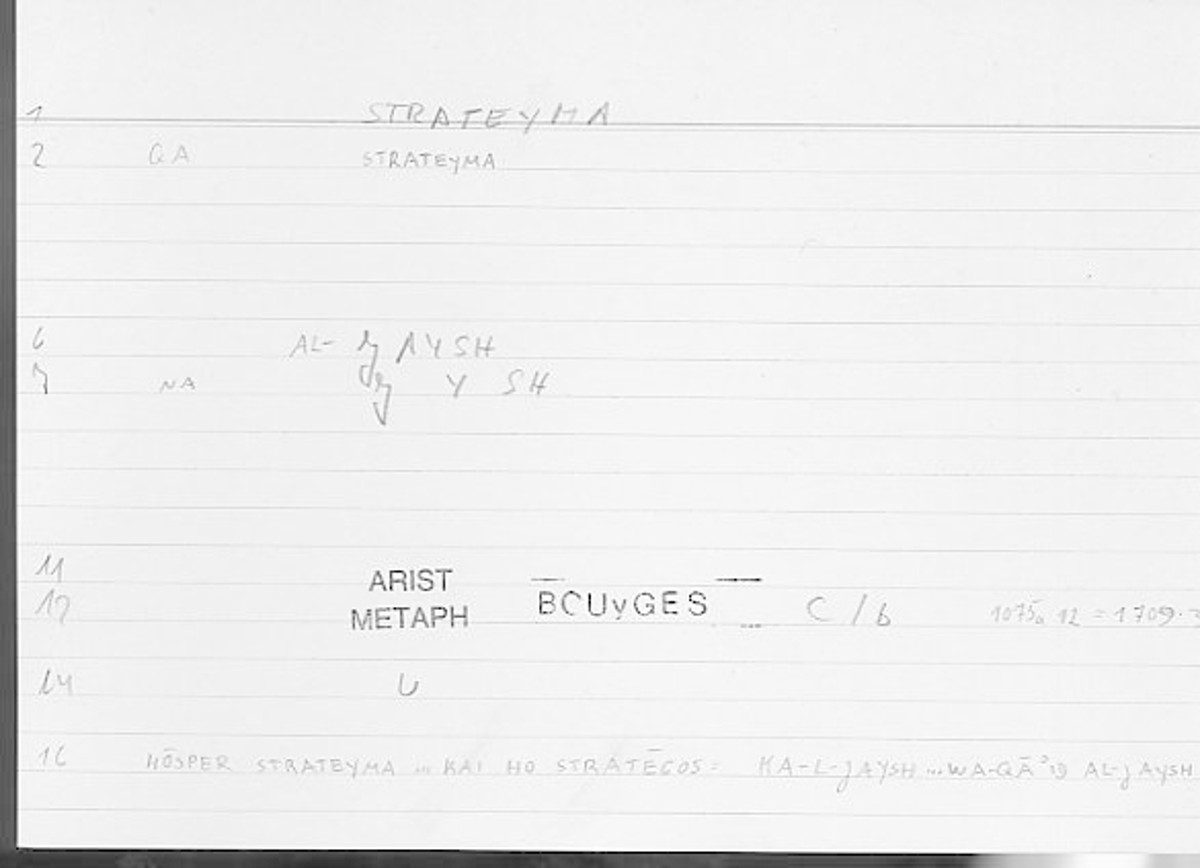 1 STRATEYMA
2 QA STRATEYMA
6 AL-JAYSH
7 NA J Y SH
11 ARIST
12 METAPH BOUyGES C/b 1075a 12 = 1709.
14 U
16 HŌSPER STRATEYMA ... KAI HO STRATĒGOS = KA-L-JAYSH ... WA-QĀ'ID AL-JAYSH